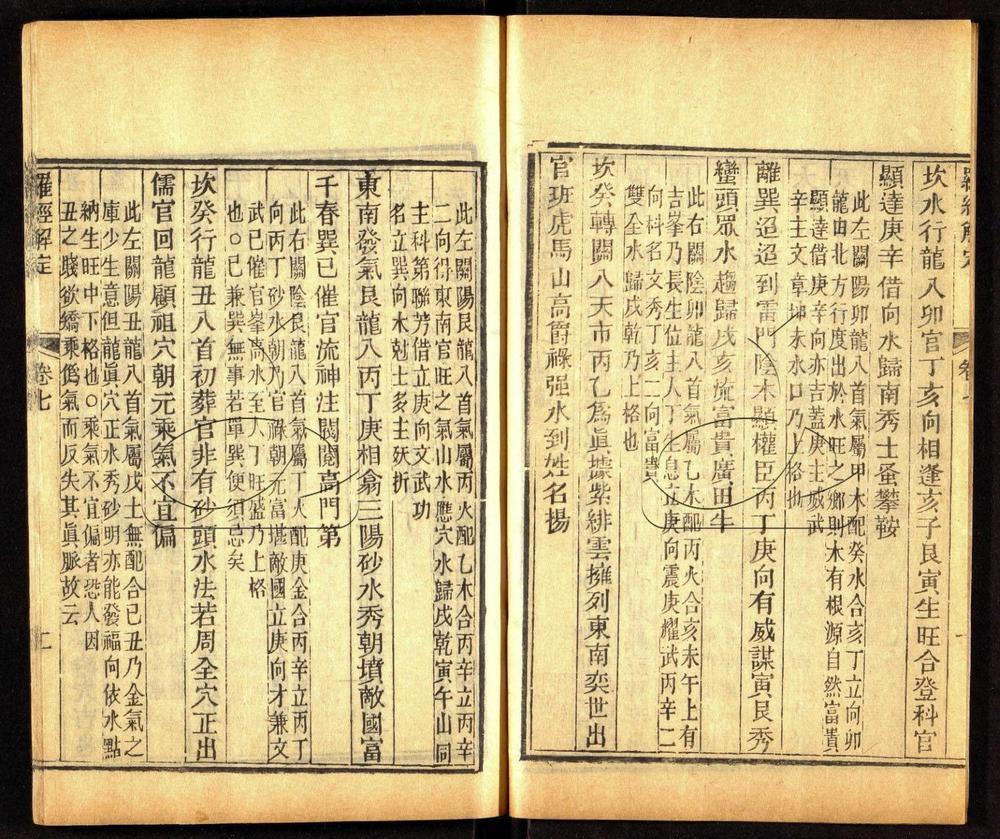 坎水行龍入卯官丁亥向相逢亥子艮寅生旺合登科官
顯達庚辛借向水歸南秀士蚤攀鞍
此左關陽卯龍入首氣屬甲木配癸水合亥丁立向卯
龍由北方行度出於水旺之鄉則木有根源自然富貴
顯達借庚辛向亦吉蓋庚主威武
辛主文章坤未水口乃上格也
離巽迢迢到雷門陰木顯權臣丙丁庚向有威謀寅艮秀
巒頭眾水趨歸戌亥流富貴廣田牛
此右關陰卯龍入首氣屬乙木配丙火合亥未午上有
吉峯乃長生位主人丁生息立庚向震庚耀武丙辛二
向科名文秀丁亥二向富貴
雙全水歸戌乾乃上格也
坎癸轉關入天市丙乙爲眞據紫緋雲擁列東南奕世出
官班虎馬山高爵祿强水到姓名揚
此左關陽艮龍入首氣屬丙火配乙木合丙辛立丙辛
二向得東南官日之氣山水應穴水歸戌乾寅午山同
主科第聯芳借立庚向文武功
名立巽向木剋土多主夭折
東南發氣艮龍入丙丁庚相翕三陽砂水秀朝墳敵國富
千春巽巳催官流神注閥閱高門第
此右關陰艮龍入首氣屬丁火配庚金合丙辛立丙丁
向丙丁砂水朝乃官祿朝元富堪敵國立庚向才兼文
武巳催官峯高水至人丁旺盛乃上格
也○巳兼巽無事若單巽便須忌矣
坎癸行龍丑入首初葬官非有砂頭水法若周全穴正出
儒官回龍顧祖穴朝元乘氣不宜偏
此左關陽丑龍入首氣屬戊土無配合巳丑乃金氣之
庫少生意但龍眞穴正水秀砂明亦能發福向依水點
納生旺中下格也○乘氣不宜偏者恐人因
丑之賤欲矯乘僞氣而反失其眞脈故云
羅經解定
卷七